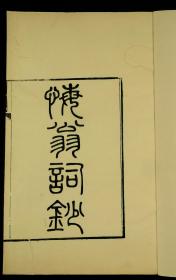 悔翁詞鈔